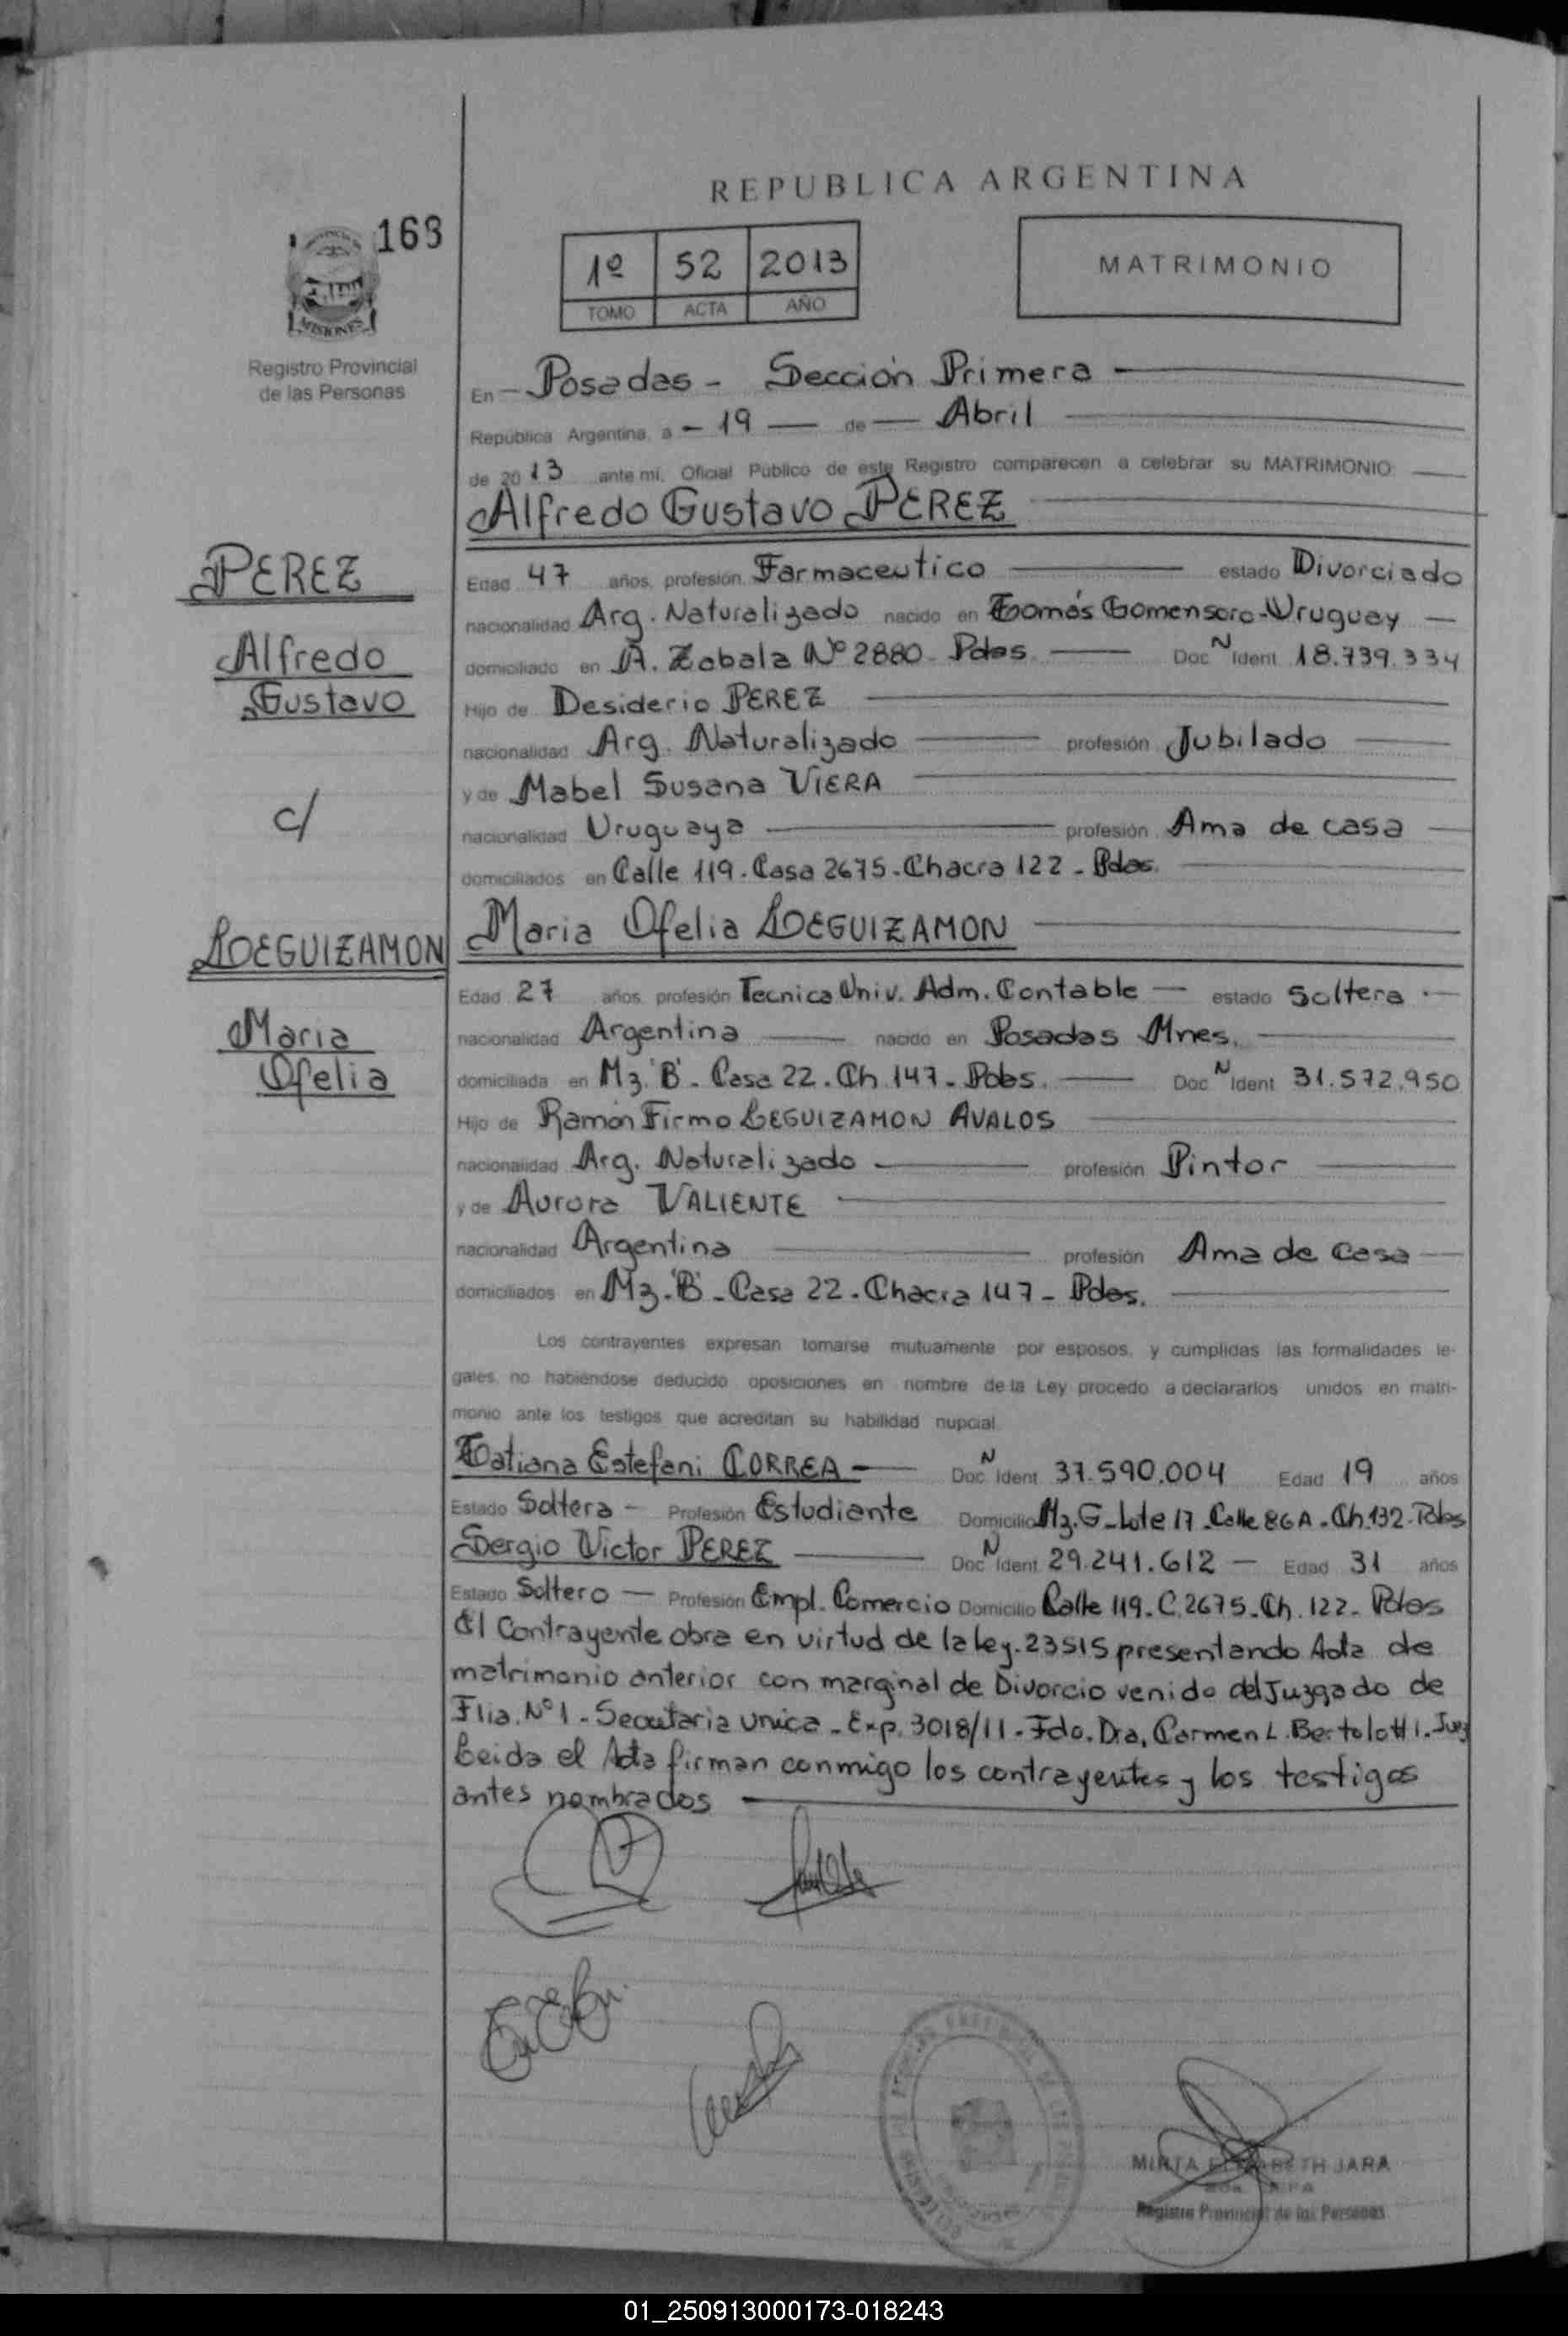 REPUBLICA ARGENTINA
163
1º 52 2013
TOMO ACTA AÑO
MATRIMONIO
MISIONES
Registro Provincial
de las Personas
En - Posadas - Sección Primera
República Argentina, a - 19 — de — Abril
de 2013 ante mi, Oficial Público de este Registro comparecen a celebrar su MATRIMONIO:
Alfredo Gustavo PEREZ
PEREZ
Alfredo
Gustavo
c/
LEGUIZAMON
Maria
Ofelia
Edad 47 años, profesión Farmaceutico estado Divorciado
nacionalidad Arg. Naturalizado nacido en Tomás Gomensoro-Uruguay
domiciliado en A. Zabala Nº 2880 - Pdas. Doc N Ident 18.739.334
Hijo de Desiderio PEREZ
nacionalidad Arg. Naturalizado profesión Jubilado
y de Mabel Susana VIERA
nacionalidad Uruguaya profesión Ama de casa
domiciliados en Calle 119. Casa 2675. Chacra 122 - Pdas.
Maria Ofelia LEGUIZAMON
Edad 27 años profesión Tecnica Univ. Adm. Contable estado Soltera
nacionalidad Argentina nacido en Posadas Mnes.
domiciliada en Mz. "B" - Casa 22. Ch 147 - Pdas. Doc N Ident 31.572.950
Hijo de Ramón Firmo LEGUIZAMON AVALOS
nacionalidad Arg. Naturalizado profesión Pintor
y de Aurora VALIENTE
nacionalidad Argentina profesión Ama de casa
domiciliados en Mz. "B" - Casa 22. Chacra 147 - Pdas.
Los contrayentes expresan tomarse mutuamente por esposos, y cumplidas las formalidades le-
gales, no habiéndose deducido oposiciones en nombre de la Ley procedo a declararlos unidos en matri-
monio ante los testigos que acreditan su habilidad nupcial.
Tatiana Estefani CORREA — Doc N Ident 37.590.004 Edad 19 años
Estado Soltera - Profesión Estudiante Domicilio Mz. G - Lote 17 - Calle 86A - Ch. 132 - Pdas
Sergio Victor PEREZ — Doc N Ident 29.241.612 — Edad 31 años
Estado Soltero — Profesión Empl. Comercio Domicilio Calle 119 - C. 2675 - Ch. 122 - Pdas
El Contrayente obra en virtud de la ley. 23515 presentando Acta de
matrimonio anterior con marginal de Divorcio venido del Juzgado de
Flia. Nº 1 - Secretaria unica - Exp. 3018/11 - Fdo. Dra. Carmen L. Bertolotti. Juez
Leida el Acta firman conmigo los contrayentes y los testigos
antes nombrados
MIRTA ELIZABETH JARA
Registro Provincial de las Personas
01_250913000173-018243